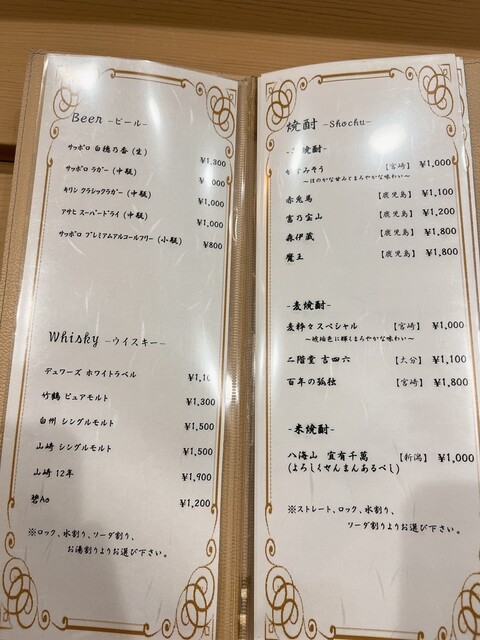 Beer -ビール-
サッポロ 白穂乃香 (生) ¥1,300
サッポロ ラガー (中瓶)
キリン クラシックラガー (中瓶) ¥1,000
アサヒ スーパードライ (中瓶) ¥1,000
サッポロ プレミアムアルコールフリー (小瓶) ¥800
Whisky -ウイスキー-
デュワーズ ホワイトラベル
竹鶴 ピュアモルト ¥1,300
白州 シングルモルト ¥1,500
山崎 シングルモルト ¥1,500
山崎 12年 ¥1,900
碧Ao ¥1,200
※ロック、水割り、ソーダ割り、
お湯割りよりお選び下さい。
焼酎 -Shochu-
焼酎-
【宮崎】 ¥1,000
～ほのかな甘みとまろやかな味わい～
赤兎馬 【鹿児島】 ¥1,100
富乃宝山 【鹿児島】 ¥1,200
森伊蔵 【鹿児島】 ¥1,800
魔王 【鹿児島】 ¥1,800
-麦焼酎-
麦粋々スペシャル 【宮崎】 ¥1,000
～琥珀色に輝くまろやかな味わい～
二階堂 吉四六 【大分】 ¥1,100
百年の孤独 【宮崎】 ¥1,800
-米焼酎-
八海山 宜有千萬 【新潟】 ¥1,000
(よろしくせんまんあるべし)
※ストレート、ロック、水割り、
ソーダ割りよりお選び下さい。